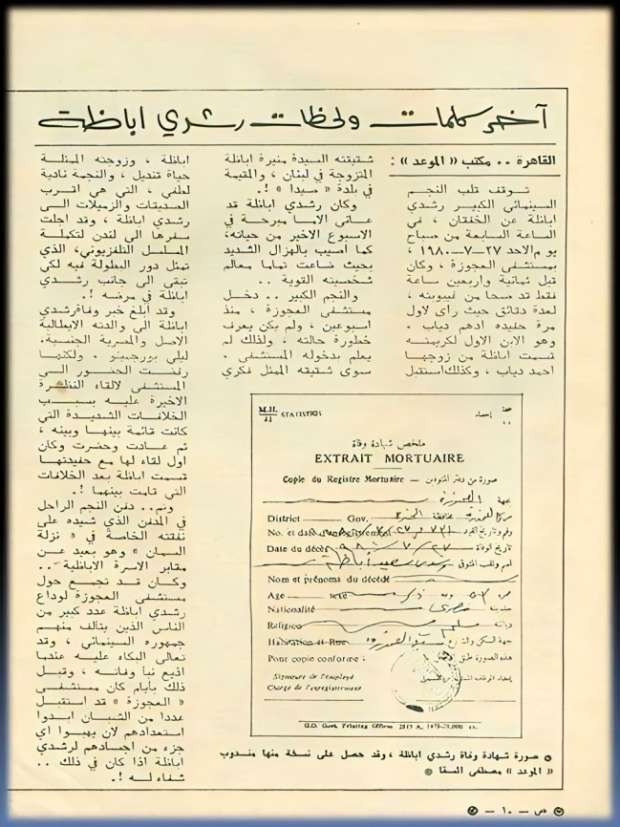 آخر كلمات ولحظات رشدي اباظة
القاهرة .. مكتب « الموعد » :
توقف قلب النجم
السينمائي الكبير رشدي
اباظة عن الخفقان ، في
الساعة السابعة من صباح
يوم الاحد ٢٧-٧-١٩٨٠ ،
بمستشفى العجوزة ، وكان
قبل ثمانية واربعين ساعة
فقط قد صحا من غيبوبته ،
لمدة دقائق حيث رأى لاول
مرة حفيده ادهم دياب .
وهو الابن الاول لكريمته
قسمت اباظة من زوجها
احمد دياب ، وكذلك استقبل
شقيقته السيدة منيرة اباظة
المتزوجة في لبنان ، والمقيمة
في بلدة « صيدا » !.
وكان رشدي اباظة قد
عانى الاما مبرحة في
الاسبوع الاخير من حياته،
كما اصيب بالهزال الشديد
بحيث ضاعت تماما معالم
شخصيته القوية ..
والنجم الكبير .. دخل
مستشفى العجوزة ، منذ
اسبوعين ، ولم يكن يعرف
خطورة حالته ، ولذلك لم
يعلم بدخوله المستشفى .
سوى شقيقه الممثل فكري
اباظة ، وزوجته الممثلة
حياة قنديل ، والنجمة نادية
لطفي ، التي هي اقرب
الصديقات والزميلات الى
رشدي اباظة ، وقد اجلت
سفرها الى لندن لتكملة
المسلسل التلفزيوني، الذي
تمثل دور البطولة فيه لكي
تبقى الى جانب رشدي
اباظة في مرضه !.
وقد أبلغ خبر وفاة رشدي
اباظة الى والدته الايطالية
الاصل والمصرية الجنسية.
ليلى بورجينو . ولكنها
رفضت الحضور الى
المستشفى لالقاء النظرة
الاخيرة عليه بسبب
الخلافات الشديدة التي
كانت قائمة بينها وبينه ،
ثم عادت وحضرت وكان
اول لقاء لها مع حفيدتها
قسمت اباظة بعد الخلافات
التي قامت بينهما !.
وتم.. دفن النجم الراحل
في المدفن الذي شيده على
نفقته الخاصة في « نزلة
السمان » وهو بعيد عن
مقابر الاسرة الاباظية ..
وكان قد تجمع حول
مستشفى العجوزة لوداع
رشدي اباظة عدد كبير من
الناس الذين يتألف منهم
جمهوره السينمائي ، وقد
تعالى البكاء عليه عندما
اذيع نبأ وفاته ، وقبل
ذلك بأيام كان مستشفى
« العجوزة » قد استقبل
عددا من الشبان ابدوا
استعدادهم لان يهبوا اي
جزء من اجسادهم لرشدي
اباظة اذا كان في ذلك ..
شفاء له !.
M.H. STATISTICS
صحة احصاء
ملخص شهادة وفاة
EXTRAIT MORTUAIRE
Copie du Registre Mortuaire — صورة من دفتر المتوفين
جهة العجوزة
District Gov. محافظة الجيزة
No. et date d'enregistrement ٧٢١
Date du décès ٢٧/٧/ تاريخ الوفاة
رشدي سعيد أباظة اسم ولقب المتوفى
Nom et prénoms du décédé
Age sexe ذكر
Nationalité مصري جنسيته
Religion مسلم ديانة
Habitation et Rue جهة السكن والشارع
Pour copie conforme : هذه الصورة طبق الاصل
Signature de l'employé
Chargé de l'enregistrement
صورة شهادة وفاة رشدي اباظة ، وقد حصل على نسخة منها مندوب
« الموعد » مصطفى السقا
ص — ١٠ —